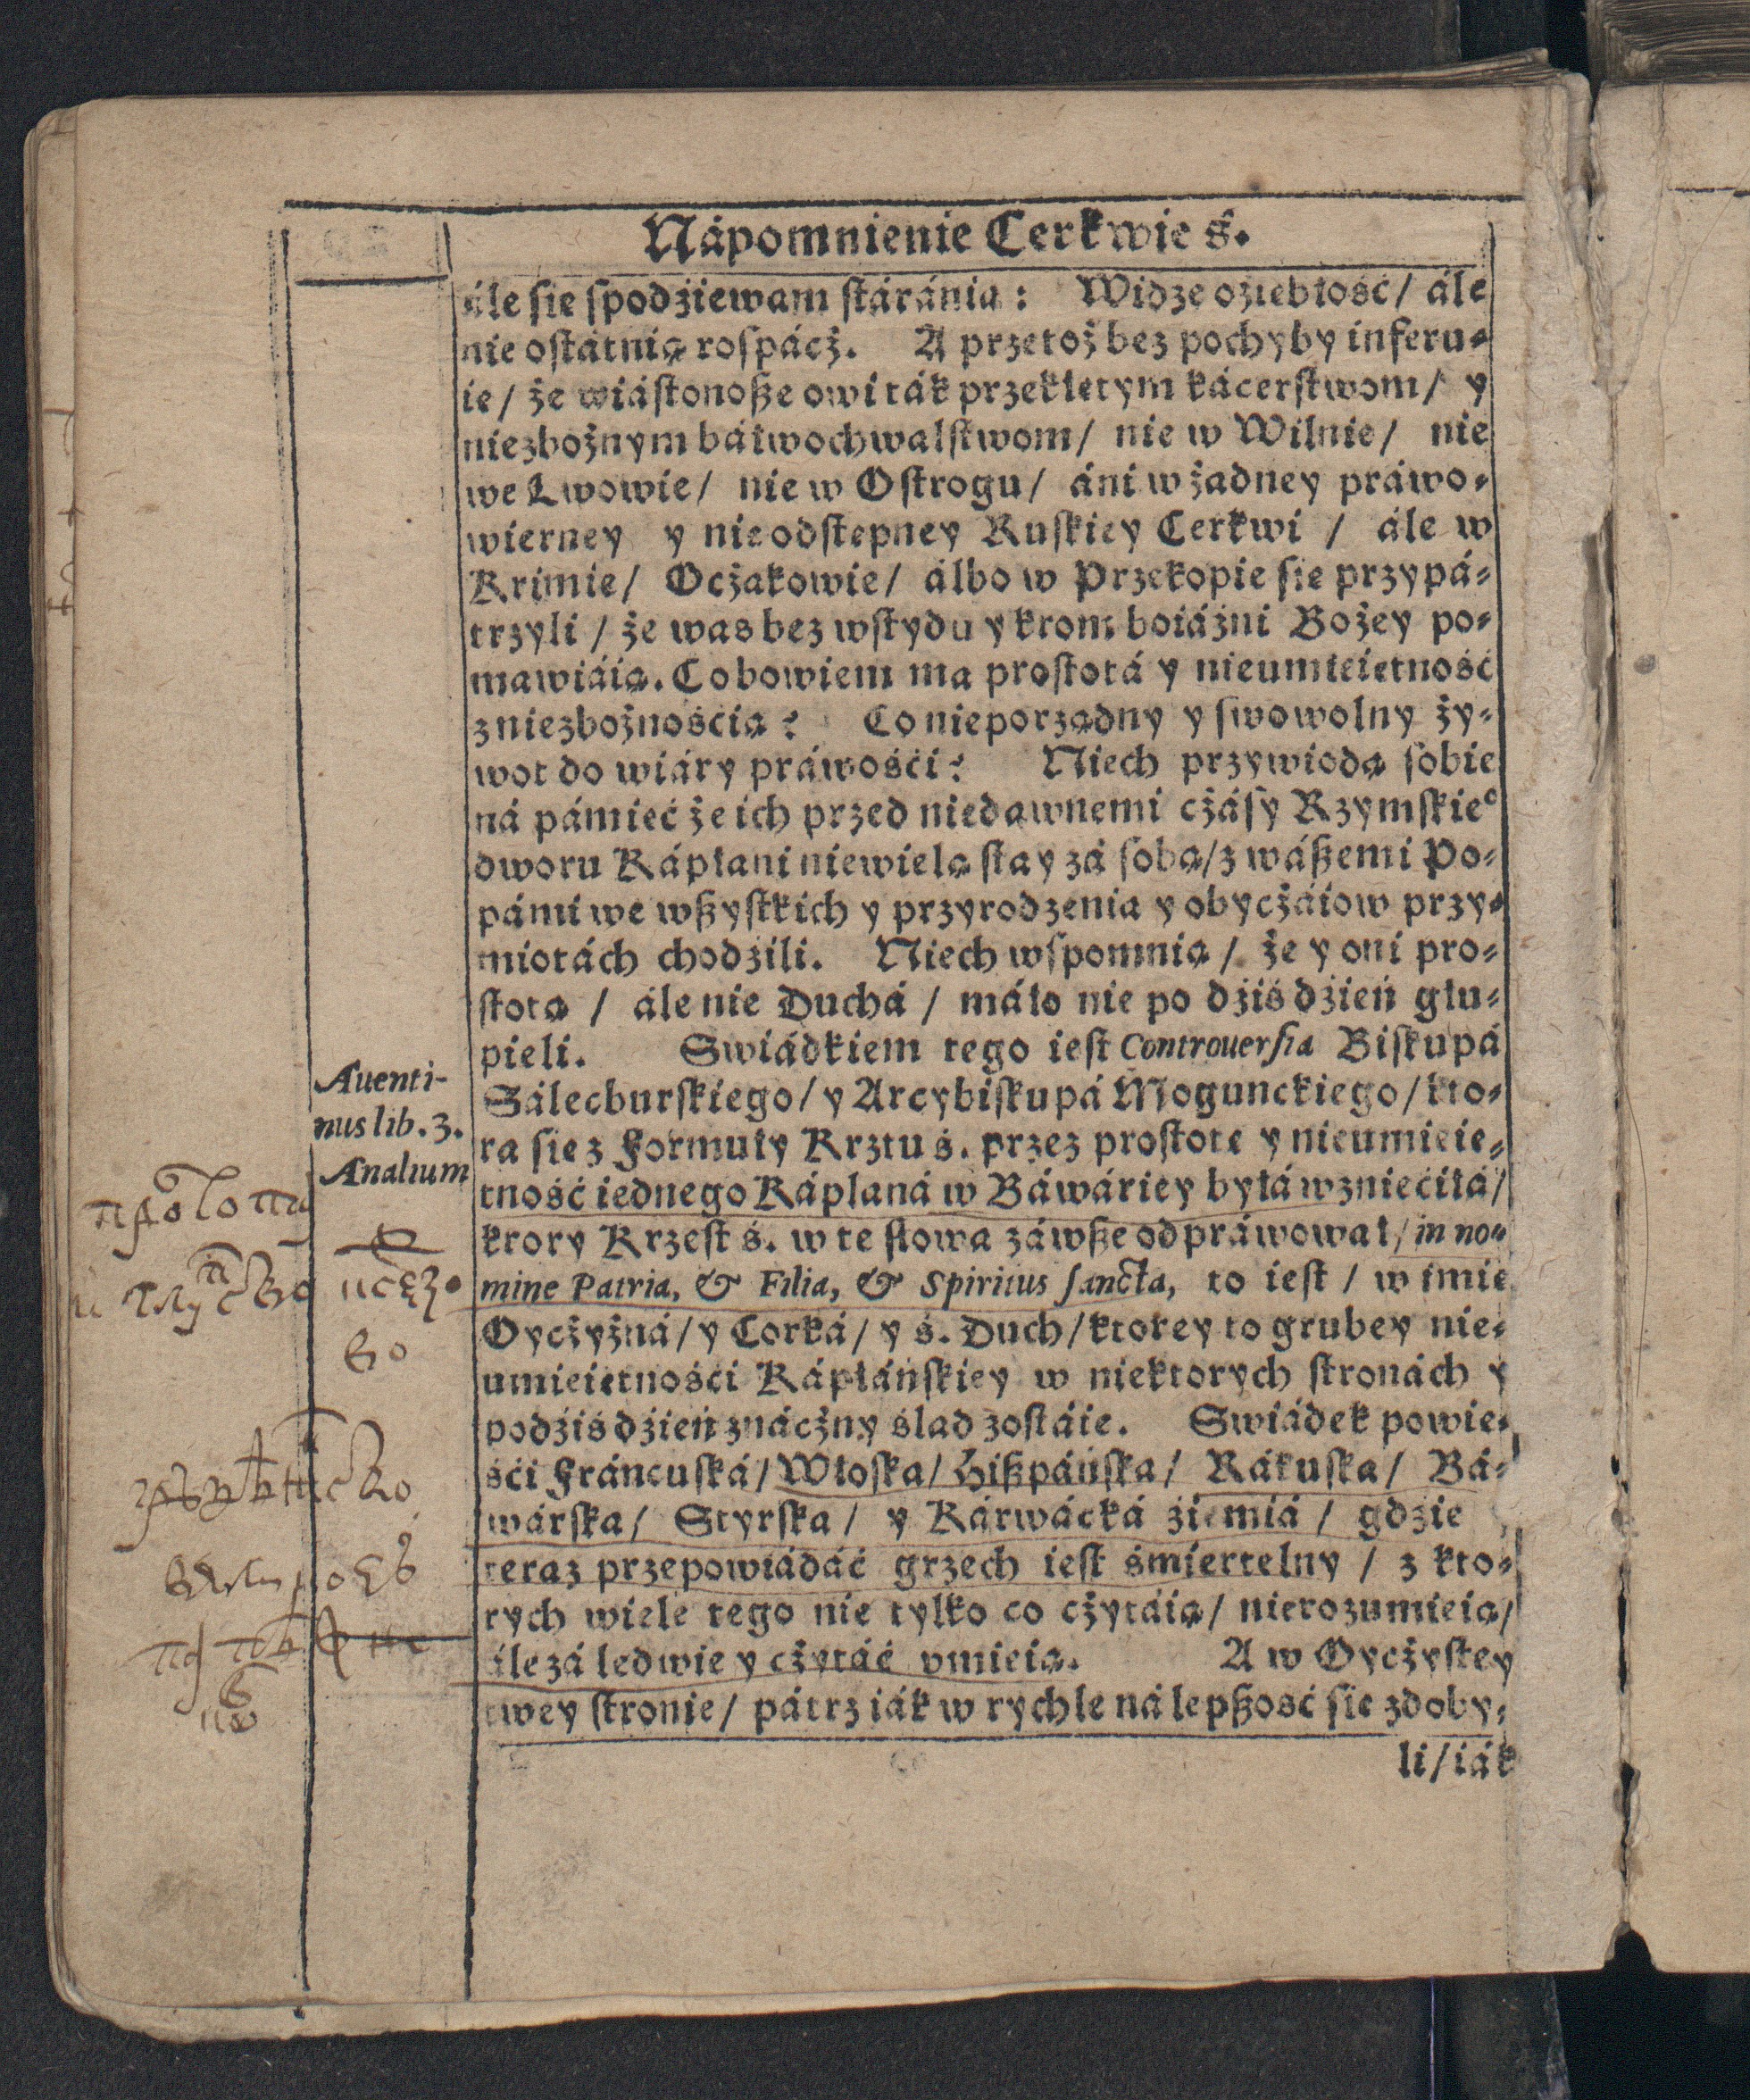 Nápomnienie Cerkwie ś.
ále sie spodżiewam stáránia: Widzę oziebłość/ ále
nie ostátnią rospácż. A przetoż bez pochyby inferu-
ie/ że wiástonosze owi ták przekletym kácerstwom/ y
niezbożnym báłwochwalstwom/ nie w Wilnie/ nie
we Lwowie/ nie w Ostrogu/ áni w żadney práwo-
wierney y nieodstepney Ruskiey Cerkwi / ále w
Krimie/ Ocżakowie/ álbo w Przekopie sie przypá-
trzyli / że was bez wstydu y krom boiáźni Bożey po-
mawiáią. Co bowiem ma prostotá y nieumieietność
z niezbożnośćią? Co nieporządny y swowolny ży-
wot do wiáry práwośći? Niech przywiodą sobie
ná pámieć że ich przed niedawnemi cżásy Rzymskieº
dworu Kápłani niewielą stay zá sobą/ z wászemi Po-
pámi we wszystkich y przyrodzenia y obycżáiow przy-
miotách chodzili. Niech wspomnią / że y oni pro-
stotą / ále nie Duchá / máło nie po dźiś dźień głu-
pieli. Swiádkiem tego iest Controuersia Biskupá
Sálecburskiego/ y Arcybiskupá Mogunckiego/ kto-
ra sie z Formuły Krztu ś. przez prostote y nieumieie-
tność iednego Kápłaná w Báwáriey byłá wzniećiłá/
ktory Krzest ś. w te słowa záwsze odpráwował/ in no-
mine Patria, & Filia, & Spiritus sancta, to iest / w imie
Oycżyżná/ y Corká/ y ś. Duch/ ktorey to grubey nie-
umieietnośći Kápłáńskiey w niektorych stronách y
podźiś dźień znácżny ślad zostáie. Swiádek powie-
śći Fráncuská/ Włoska/ Hiszpáńska/ Rákuska/ Bá-
wárska/ Styrska/ y Kárwácká źiemiá / gdzie
teraz przepowiádáć grzech iest śmiertelny / z kto-
rych wiele tego nie tylko co cżytáią/ nierozumieią/
ále zá ledwie y cżytáć vmieią. A w Oycżystey
twey stronie/ pátrz iák w rychle ná lepszość sie zdoby-
li/ iák
Auenti-
nus lib. 3.
Analium